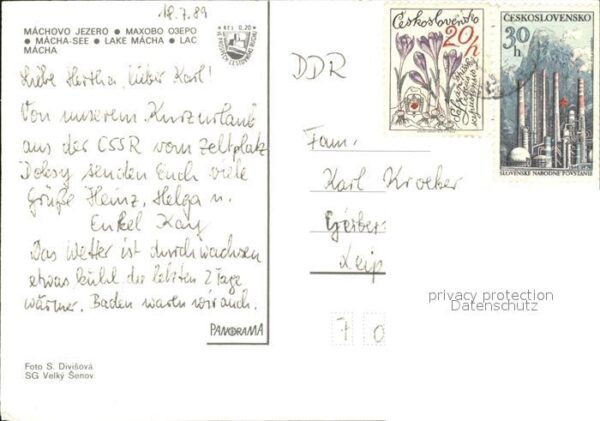 18.7.89
MÁCHOVO JEZERO ● MAXOBO O3EPO
● MÁCHA-SEE ● LAKE MÁCHA ● LAC
MÁCHA
Kčs 0,20
Liebe Hertha, lieber Karl!
Von unserem Kurzurlaub
aus der CSSR vom Zeltplatz
Doksy senden Euch viele
Grüße Heinz, Helga u.
Enkel Kay
Das Wetter ist durchwachsen
etwas kühl die letzten 2 Tage
wärmer. Baden waren wir auch.
PANORAMA
Foto S. Divišová
SG Velký Šenov
DDR
Československo
20h
ČESKOSLOVENSKO
30h
SLOVENSKÉ NÁRODNÉ POVSTANIE
Fam.
Karl Kroeker
Gerber
Leip
privacy protection
Datenschutz
7 0